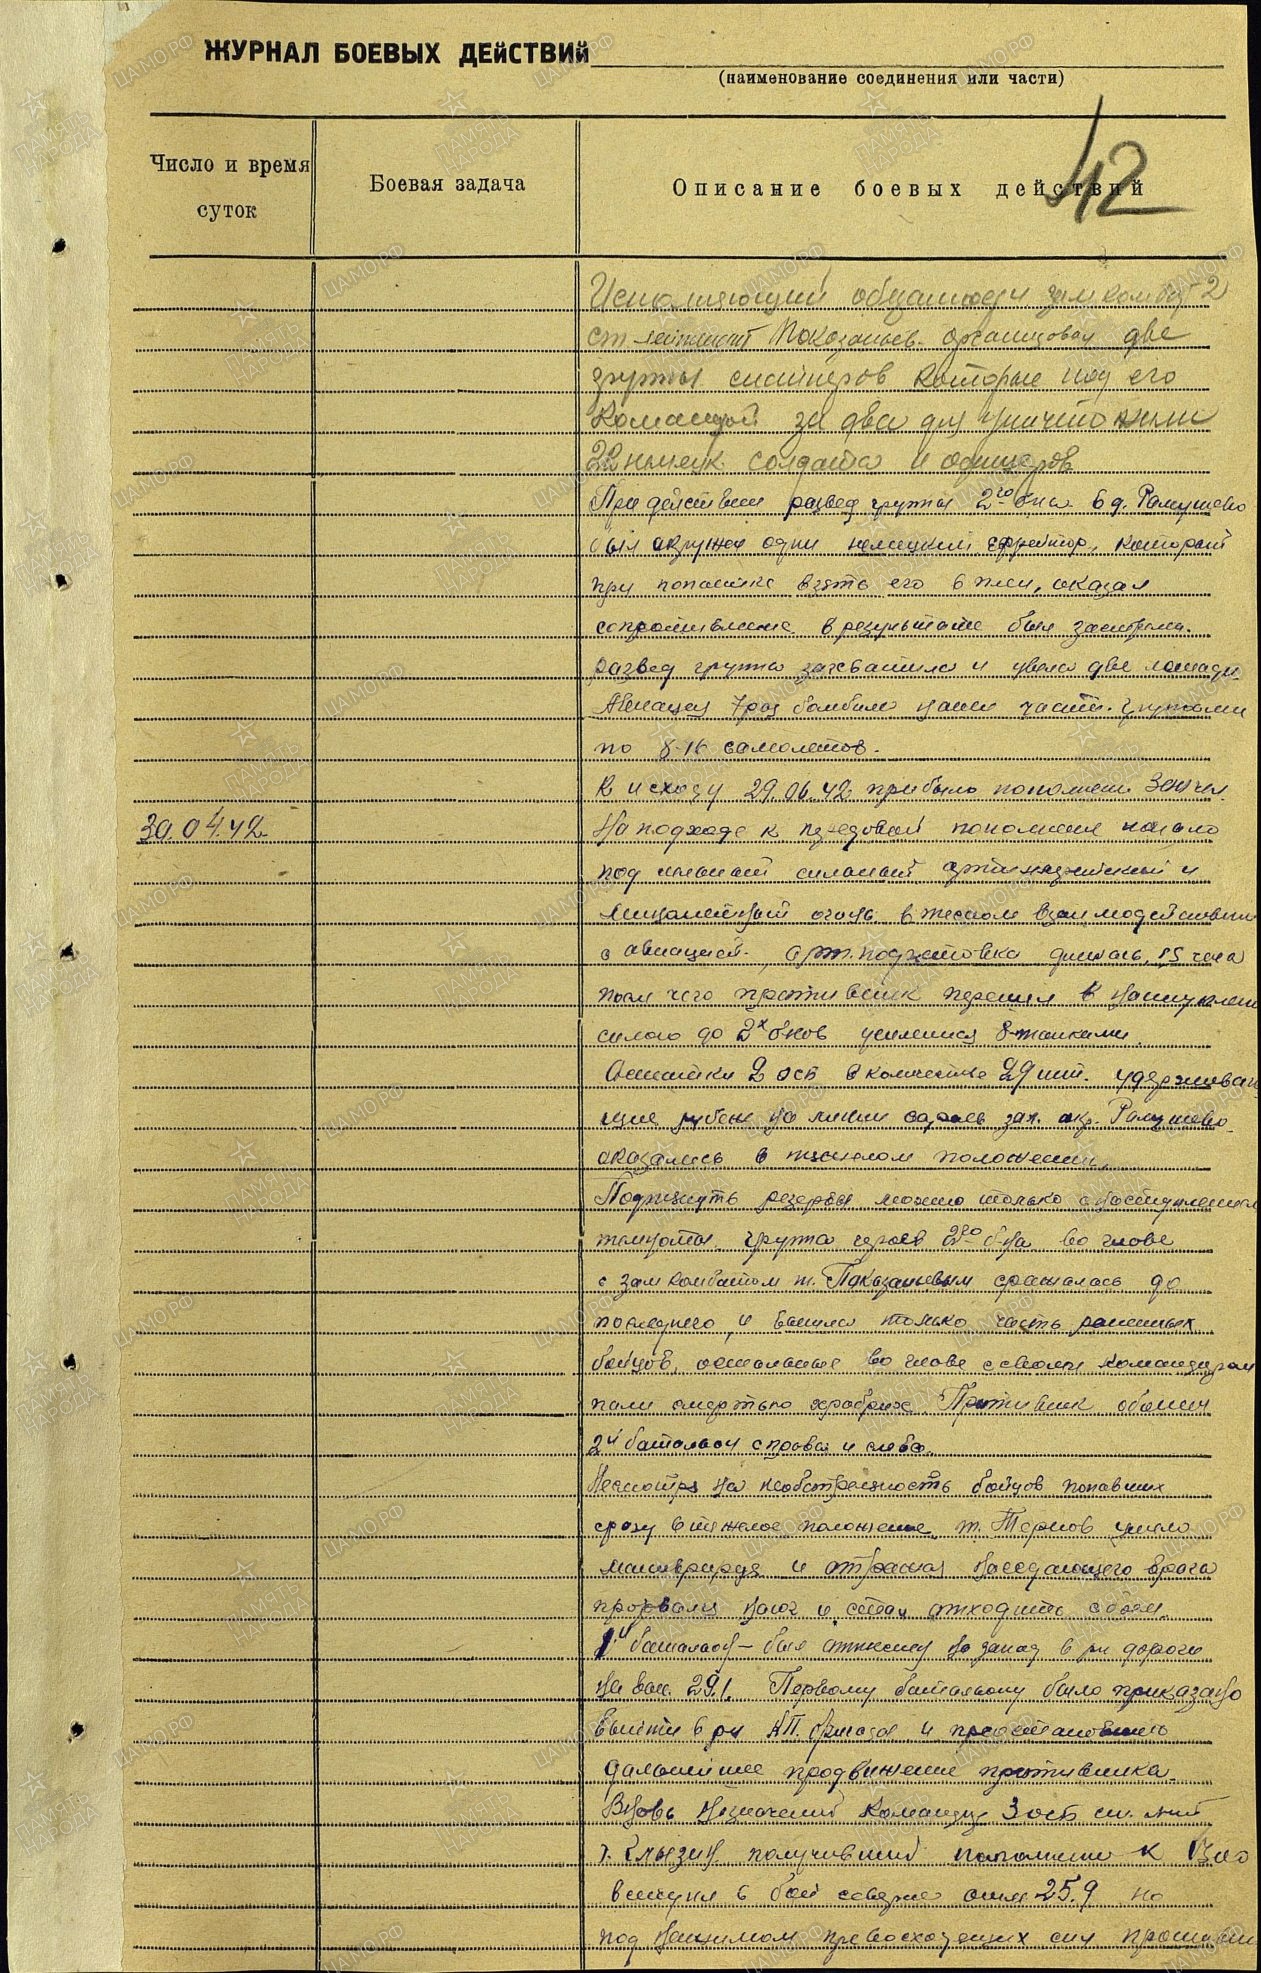 ЖУРНАЛ БОЕВЫХ ДЕЙСТВИЙ
(наименование соединения или части)
42
Число и время суток
Боевая задача
Описание боевых действий
Исполняющий обязаности зам комбат-2
ст лейтенант Показаньев организовал две
группы снайперов которые под его
командой за два дня уничтожили
22 немецк. солдата и офицеров
При действии развед группы 2го б-на в д. Рамушево
был окружен один немецкий ефрейтор, который
при попытке взять его в плен, оказал
сопротивление в результате был застрелен.
развед группа захватила и увела две лошади.
Авиация 7 раз бомбила наши части группами
по самолетов.
К исходу 29.04.42 прибыло пополнен чел.
30.04.42
На подходе к передовой пополнение попало
под сильный артиллерийский и
минометный огонь в тесном взаимодействии
с авиацией, арт. подготовка длилась часа
после чего противник перешел в наступлен
силою до 2х б-нов усиленных 8 танками.
Остатки 2 осб в количестве 29 шт. удерживаю
щие рубеж на линии сараев зап. окр. Рамушево
оказались в тяжелом положении.
Подтянуть резервы можно только с наступлением
темноты. группа героев 2го б-на во главе
с замкомбатом т. Показаньевым сражалась до
последнего, и вышла только часть раненых
бойцов, остальные во главе с своим командиром
пали смертью храбрых. Противник обошел
2й батальон справа и слева.
Несмотря на необстрелность бойцов попавших
сразу в тяжелое положение, т. Тернов умело
маневрируя и отражая наседающего врага
и стал отходить с боем.
1й батальон - был оттеснен на запад в р-н дороги
на выс. 29,1. Первому батальону было приказано
выйти в р-н КП и приостановить
дальнейшее продвижение противника.
Вновь назначеный командир 3 осб ст. л-нт
т. получивший пополнение к
вступил в бой севернее отм 25.9 но
под нажимом превосходящих сил противни